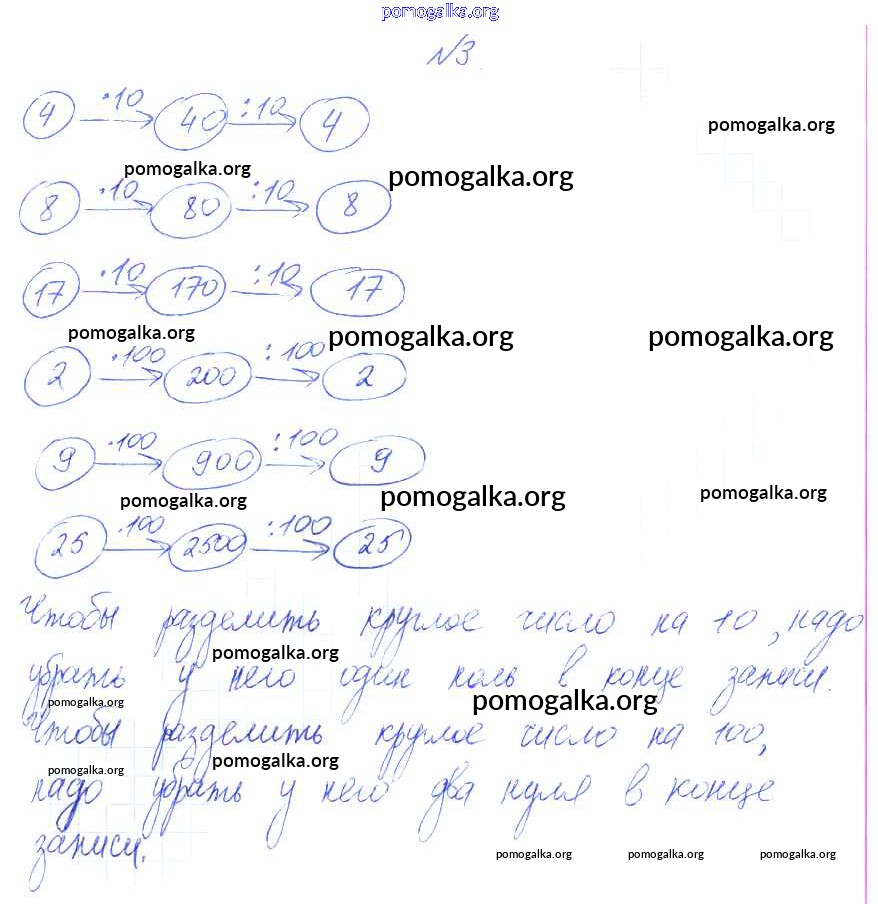 pomogalka.org
№3
4 ·10 40 :10 4
pomogalka.org
pomogalka.org
pomogalka.org
8 ·10 80 :10 8
17 ·10 170 :10 17
pomogalka.org
pomogalka.org
pomogalka.org
2 ·100 200 :100 2
9 ·100 900 :100 9
pomogalka.org
pomogalka.org
pomogalka.org
25 ·100 2500 :100 25
Чтобы разделить круглое число на 10, надо
pomogalka.org
убрать у него один ноль в конце записи.
pomogalka.org
pomogalka.org
Чтобы разделить круглое число на 100,
pomogalka.org
pomogalka.org
надо убрать у него два нуля в конце
записи.
pomogalka.org
pomogalka.org
pomogalka.org